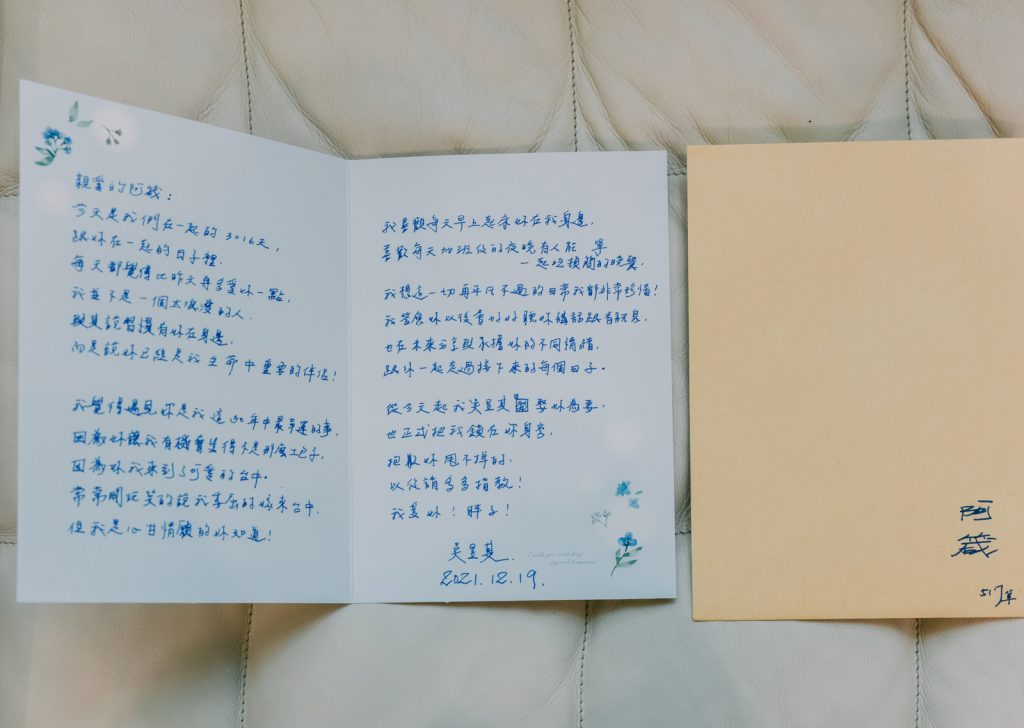 親愛的阿箴：
今天是我們在一起的3016天，
跟妳在一起的日子裡，
每天都覺得比昨天再多愛妳一點，
我並不是一個太浪漫的人，
與其說習慣有妳在身邊，
而是說妳已經是我生命中重要的伴侶！
我覺得遇見妳是我這30年中最幸運的事，
因為妳讓我有機會變得不是那麼土包子，
因為妳我來到了可愛的台中。
常常開玩笑的說我享金的嫁來台中，
但我是心甘情願的妳知道！
我喜歡每天早上起來妳在我身邊，
喜歡每天加班後的夜晚有人能
一起吃頓簡的晚餐，
我想這一切再平凡不過的日常我都非常珍惜！
我答應妳以後會好好聽妳講話跟有訊息，
也在未來分享與承擔妳的不同情緒，
跟妳一起走過接下來的每個日子。
從今天起我吳昱其 娶妳為妻，
也正式把我鎖在妳身旁，
抱歉妳甩不掉的，
以後請多多指教！
我愛妳！胖子！
吳昱其.
2021.12.19.
阿
箴